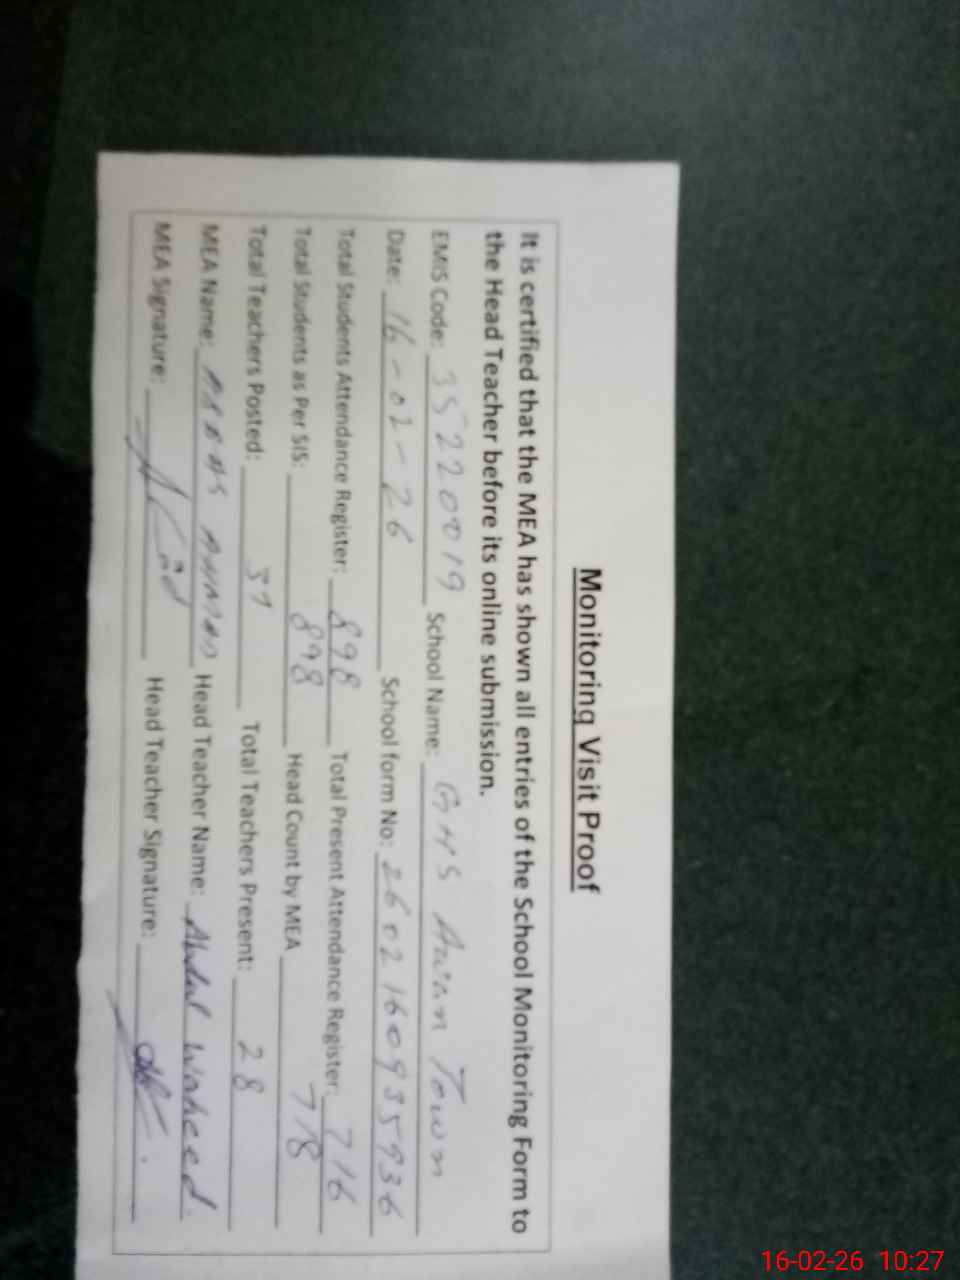 Monitoring Visit Proof
It is certified that the MEA has shown all entries of the School Monitoring Form to
the Head Teacher before its online submission.
EMIS Code: 35220019 School Name: GHS Awan Town
Date: 16-02-26 School form No: 26021609355936
Total Students Attendance Register: 898 Total Present Attendance Register: 716
Total Students as Per SIS: 898 Head Count by MEA 778
Total Teachers Posted: Total Teachers Present: 28
MEA Name: Head Teacher Name: Abdul Waheed.
MEA Signature: Head Teacher Signature:
16-02-26 10:27